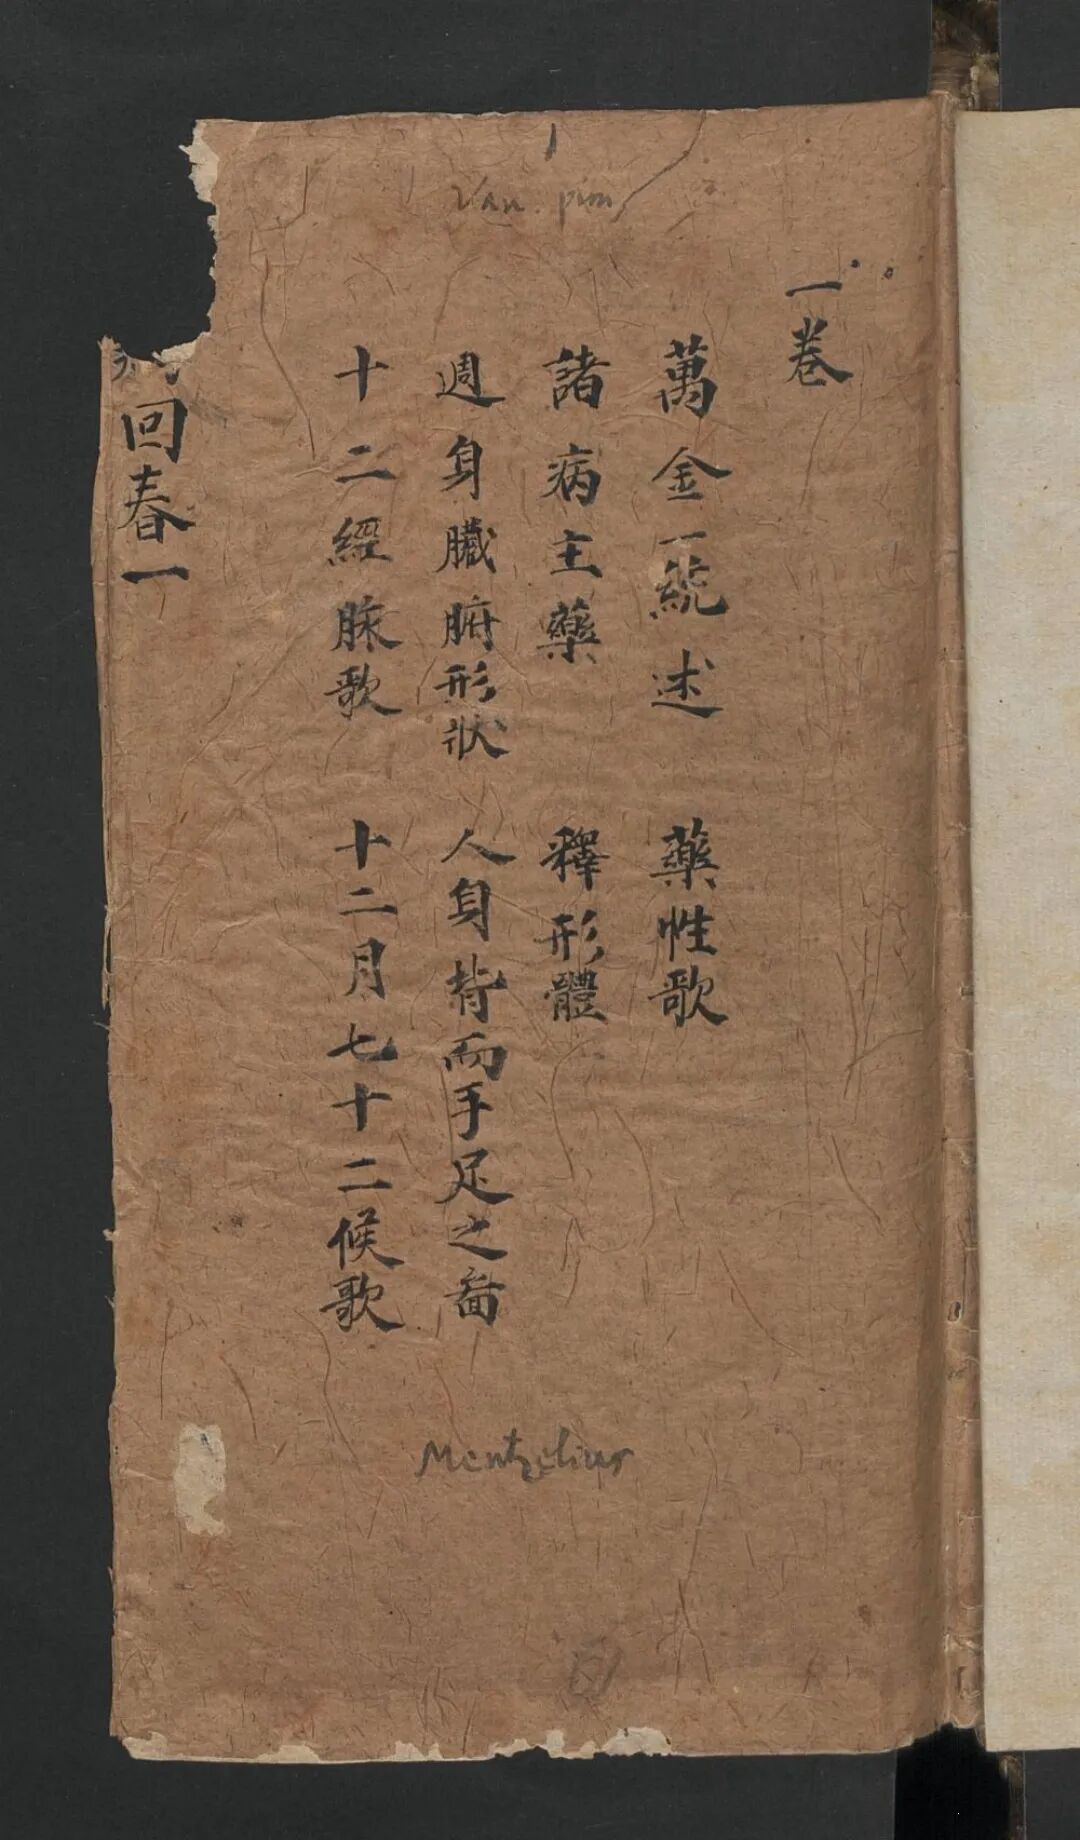 Van. pim
一卷
萬金一統述 藥性歌
諸病主藥 釋形體
週身臟腑形狀 人身背面手足之啚
十二經脉歌 十二月七十二候歌
回春一
Mentzelius